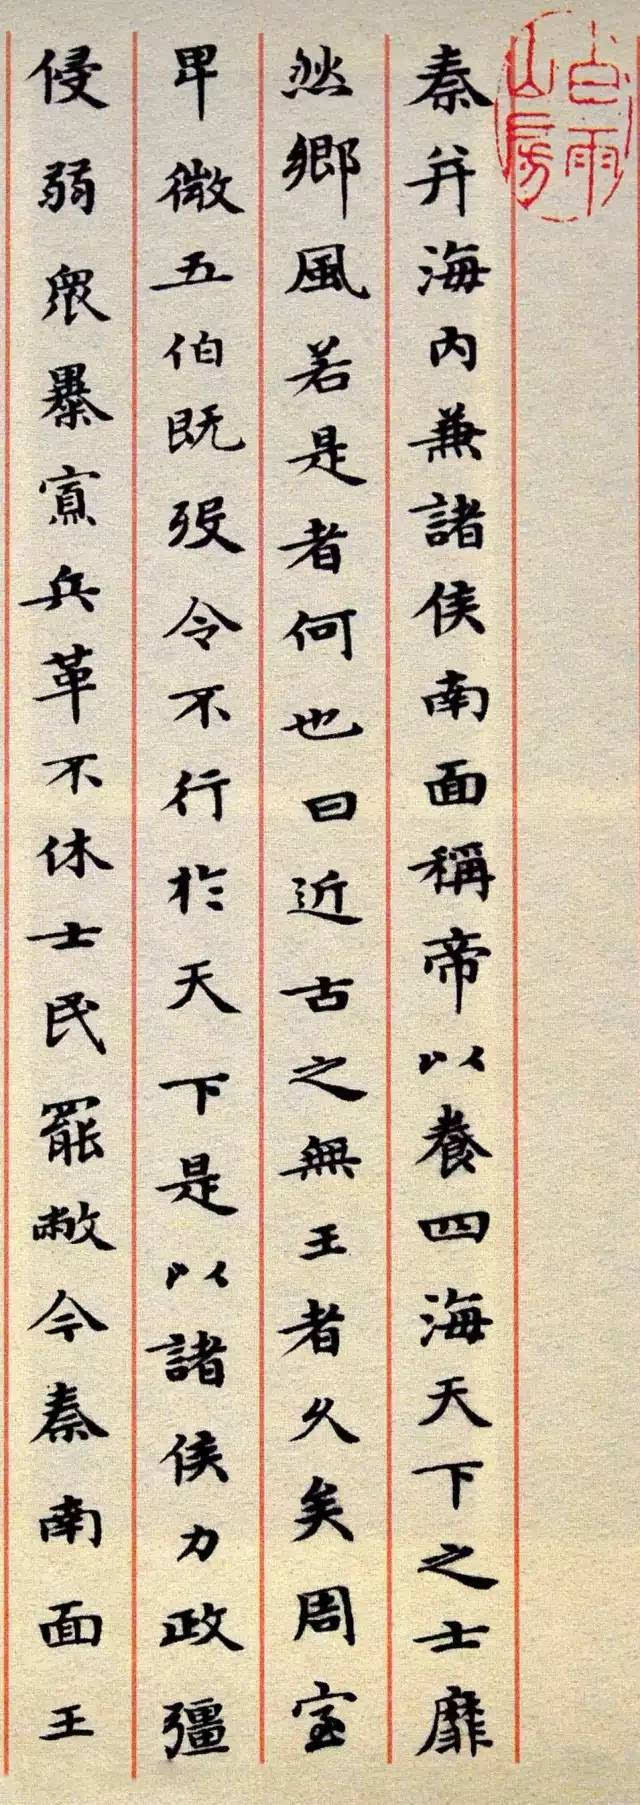 白雨
山房
秦并海內兼諸侯南面稱帝以養四海天下之士靡
然鄉風若是者何也曰近古之無王者久矣周室
卑微五伯既歿令不行於天下是以諸侯力政彊
侵弱眾暴寡兵革不休士民罷敝今秦南面王